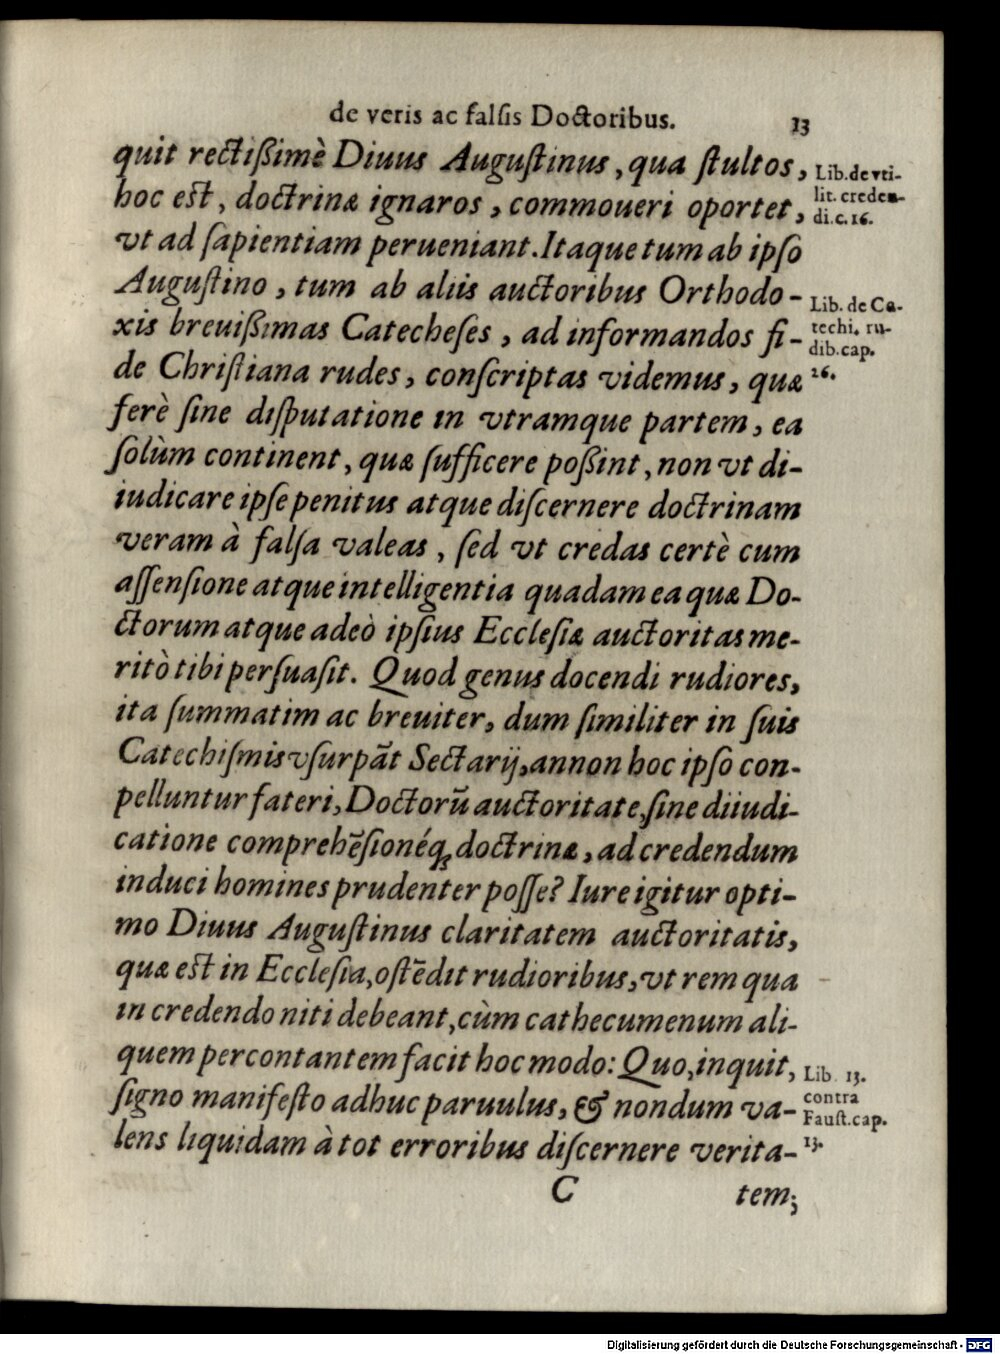 de veris ac falsis Doctoribus. 13
quit rectißimè Diuus Augustinus, qua stultos,
hoc est, doctrinæ ignaros, commoueri oportet,
vt ad sapientiam perueniant. Itaque tum ab ipso
Augustino, tum ab aliis auctoribus Orthodo-
xis breuißimas Catecheses, ad informandos fi-
de Christiana rudes, conscriptas videmus, quæ
ferè sine disputatione in vtramque partem, ea
solùm continent, quæ sufficere poßint, non vt di-
iudicare ipse penitus atque discernere doctrinam
veram à falsa valeas, sed vt credas certè cum
assensione atque intelligentia quadam ea quæ Do-
ctorum atque adeò ipsius Ecclesiæ auctoritas me-
ritò tibi persuasit. Quod genus docendi rudiores,
ita summatim ac breuiter, dum similiter in suis
Catechismis vsurpãt Sectarij, annon hoc ipso con-
pelluntur fateri, Doctorũ auctoritate, sine diiudi-
catione comprehẽsionéq; doctrinæ, ad credendum
induci homines prudenter posse? Iure igitur opti-
mo Diuus Augustinus claritatem auctoritatis,
quæ est in Ecclesia, ostẽdit rudioribus, vt rem qua
in credendo niti debeant, cùm cathecumenum ali-
quem percontantem facit hoc modo: Quo, inquit,
signo manifesto adhuc paruulus, & nondum va-
lens liquidam à tot erroribus discernere verita-
C tem;
Lib. de vti-
lit. creden-
di. c. 16.
Lib. de Ca-
techi. ru-
dib. cap.
26.
Lib. 13.
contra
Faust. cap.
13.
Digitalisierung gefördert durch die Deutsche Forschungsgemeinschaft - DFG